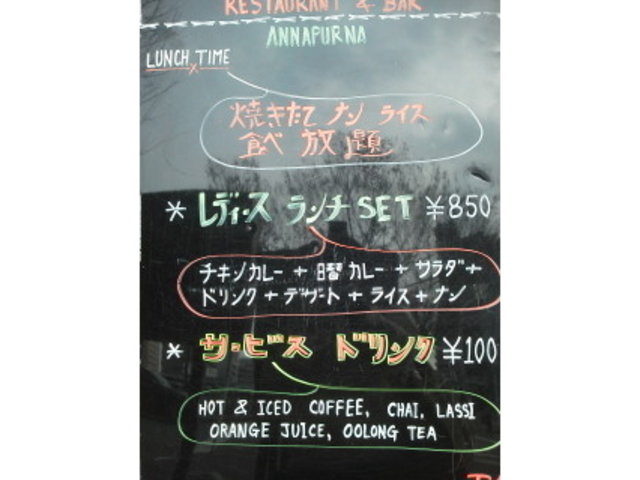 RESTAURANT & BAR
ANNAPURNA
LUNCH TIME
焼きたて ナン ライス
食べ 放題
* レディース ランチ SET ¥850
チキンカレー + 日替カレー + サラダ+
ドリンク + デザート + ライス + ナン
* サービス ドリンク ¥100
HOT & ICED COFFEE, CHAI, LASSI
ORANGE JUICE, OOLONG TEA